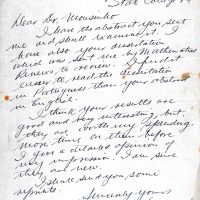 State College Pa
Dear Dr. Mousinho
I have the abstract you sent
me and shall it. I
have also your dissertation
which was sent me by the
to review. I find it
easier to read the dissertation
in Portuguese than your abstract
in English.
I think your results are
good and very interesting, but
they are worth my spending
more time on them before
I give a detailed opinion of
my impression. I am sure
they are new.
I shall send you some
reprints.
Sincerely yours